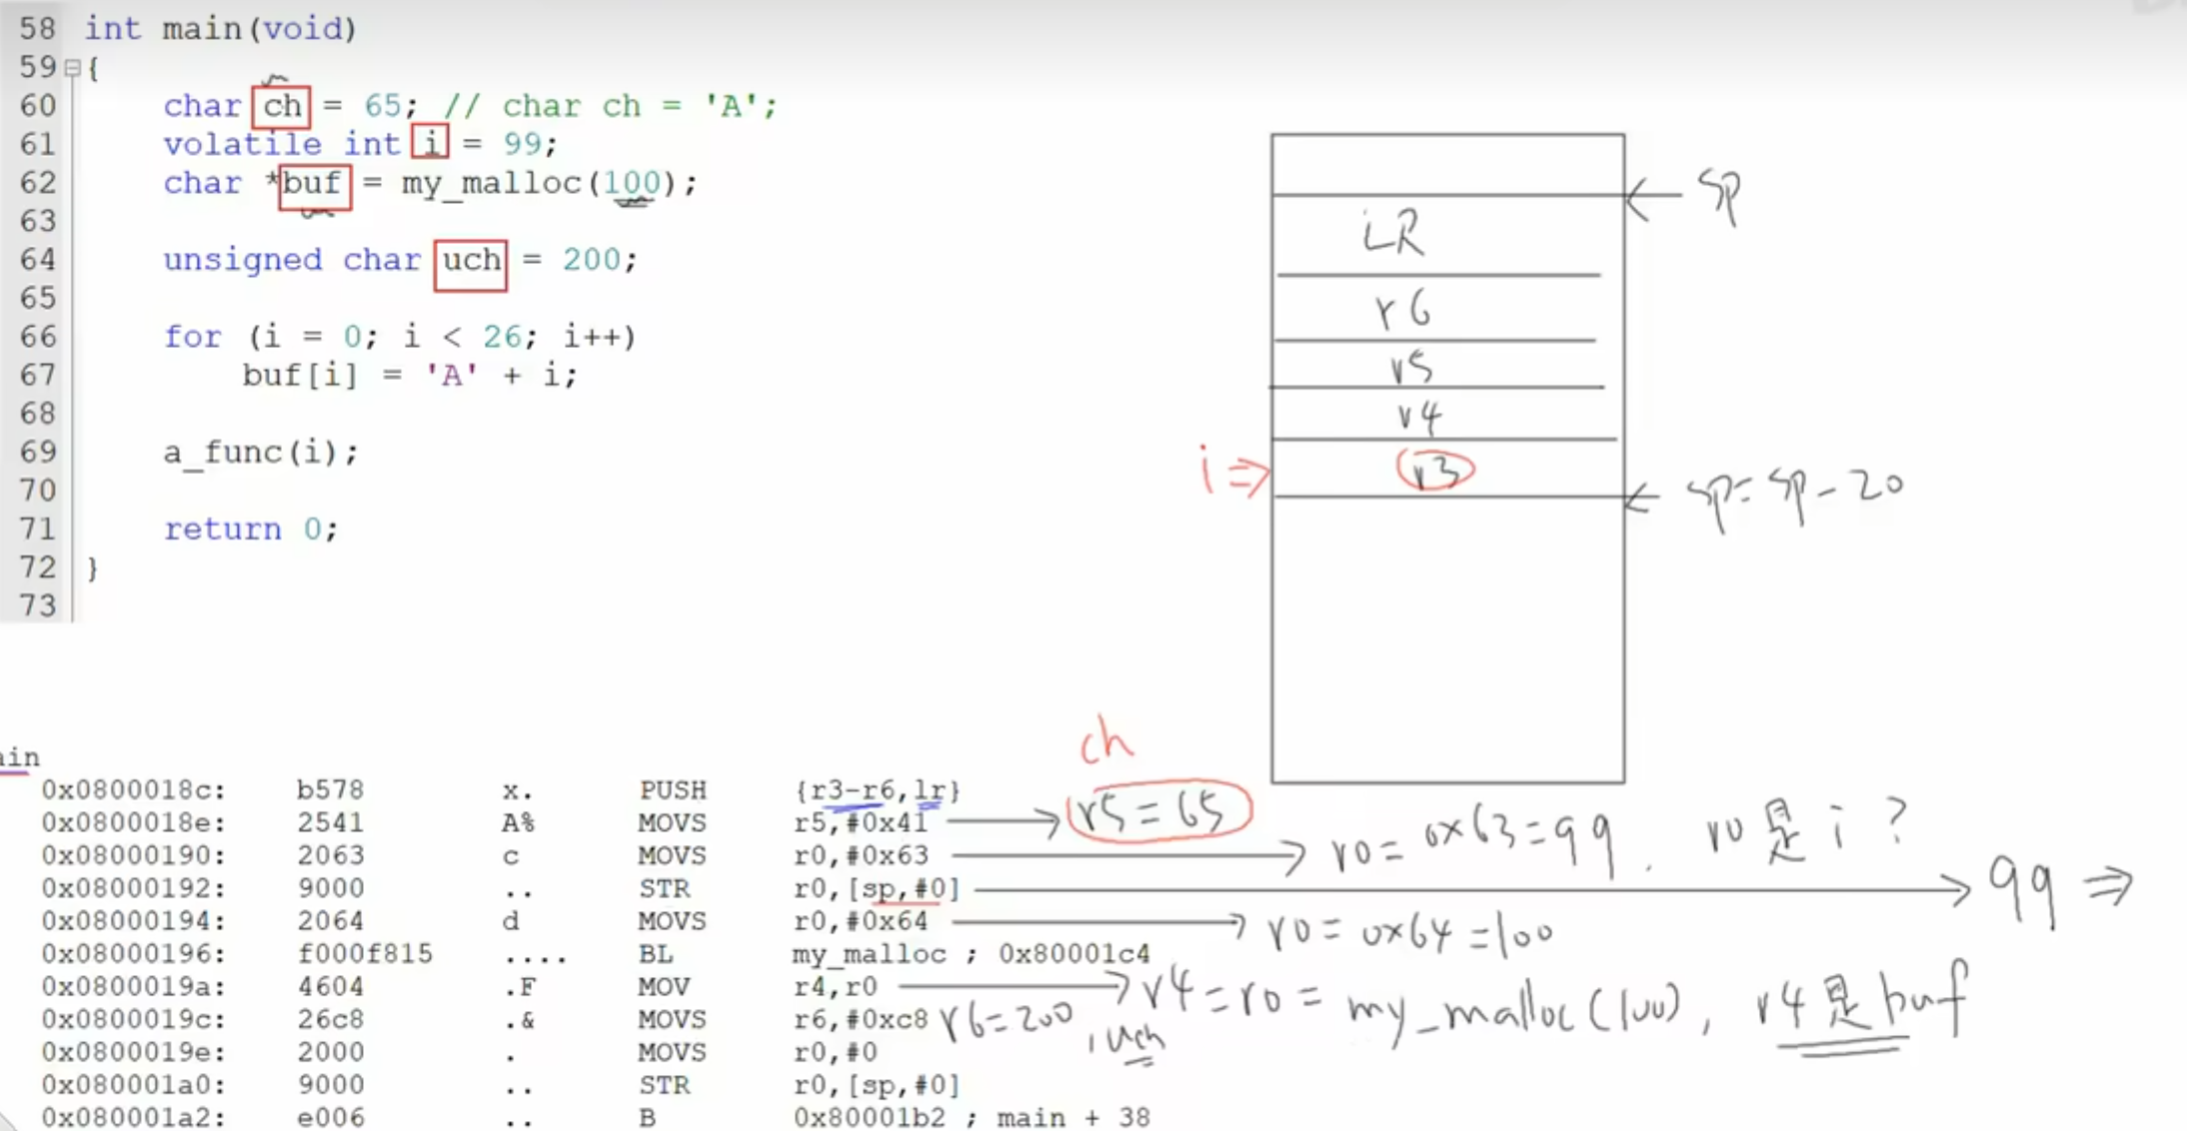 58 int main(void)
59 {
60 char ch = 65; // char ch = 'A';
61 volatile int i = 99;
62 char *buf = my_malloc(100);
63
64 unsigned char uch = 200;
65
66 for (i = 0; i < 26; i++)
67 buf[i] = 'A' + i;
68
69 a_func(i);
70
71 return 0;
72 }
73
sp
LR
r6
r5
r4
i⇒ r3
sp=sp-20
ch
ain
0x0800018c: b578 x. PUSH {r3-r6,lr}
0x0800018e: 2541 A% MOVS r5,#0x41 → r5=65
0x08000190: 2063 c MOVS r0,#0x63 → r0=0x63=99. r0是i?
0x08000192: 9000 .. STR r0,[sp,#0] → 99 ⇒
0x08000194: 2064 d MOVS r0,#0x64 → r0=0x64=100
0x08000196: f000f815 .... BL my_malloc ; 0x80001c4
0x0800019a: 4604 .F MOV r4,r0 → r4=r0=my_malloc(100), r4是buf
0x0800019c: 26c8 .& MOVS r6,#0xc8 r6=200, uch
0x0800019e: 2000 . MOVS r0,#0
0x080001a0: 9000 .. STR r0,[sp,#0]
0x080001a2: e006 .. B 0x80001b2 ; main + 38